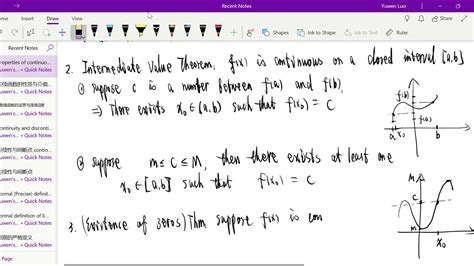 Recent Notes
Yuwen Luo
Recent Notes
roperties of continuo...
uwen's... » Quick Notes
uwen's... » Quick Notes
uwen's... » Quick Notes
ontinuity and disconti...
uwen's... » Quick Notes
uwen's... » Quick Notes
ormal (Precise) definit...
uwen's... » Quick Notes
ormal definition of li...
uwen's... » Quick Notes
uwen's... » Quick Notes
2. Intermediate Value Theorem. f(x) is continuous on a closed interval [a,b]
① suppose c is a number between f(a) and f(b).
⇒ There exists x₀∈(a,b) such that f(x₀) = C
f(b)
f(a)
a x₀ b
② suppose m≤C≤M, then there exists at least one
x₀∈[a,b] such that f(x₀) = C
M
C
m
x₀
3. (Existence of zeros) Thm suppose f(x) is con